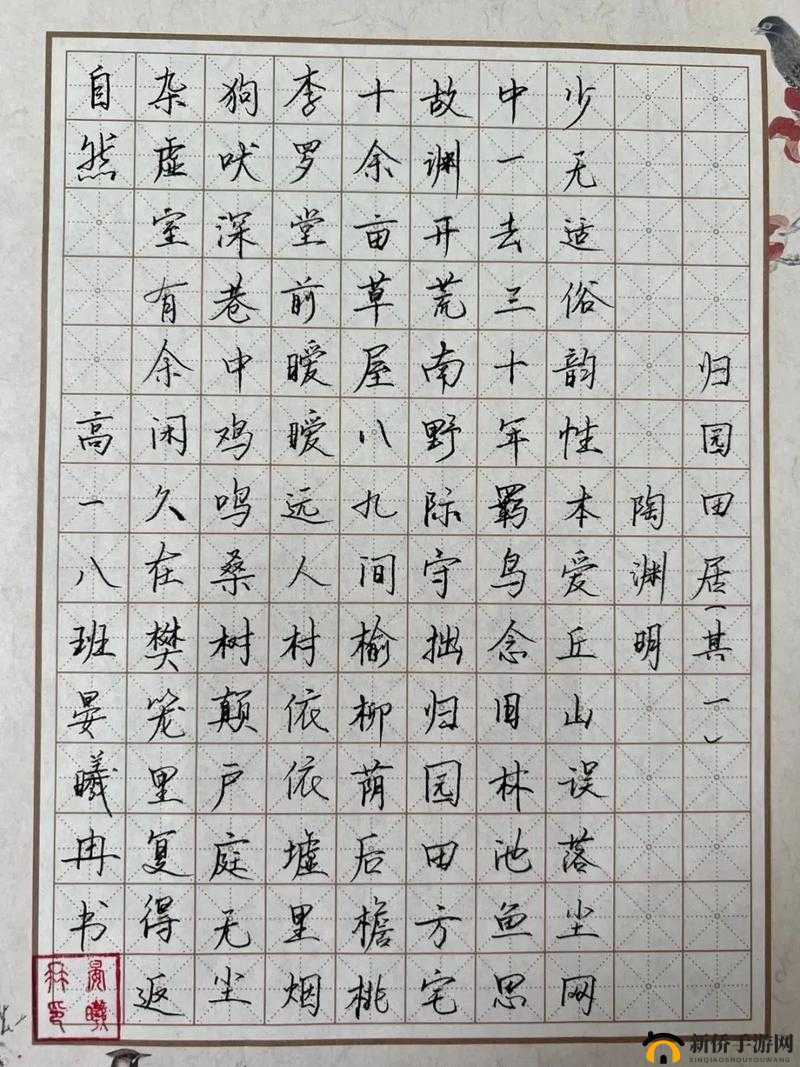 归园田居(其一)
陶渊明
少无适俗韵性本爱丘山误落尘网
中一去三十年羁鸟念旧林池鱼思
故渊开荒南野际守拙归园田方宅
十余亩草屋八九间榆柳荫后檐桃
李罗堂前暧暧远人村依依墟里烟
狗吠深巷中鸡鸣桑树颠户庭无尘
杂虚室有余闲久在樊笼里复得返
自然
高一八班晏曦冉书
晏曦冉印
新侨手游网
XINQIAOSHOUYOUWANG